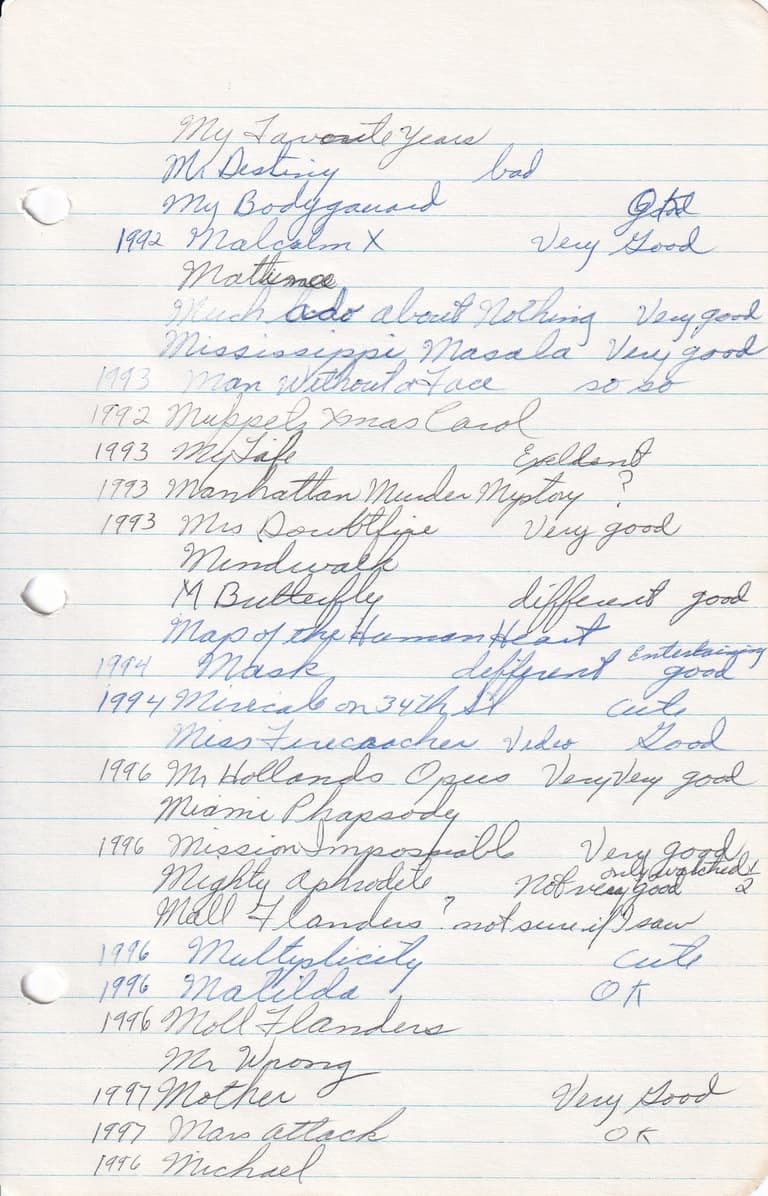 My Favorite Years
Mr Destiny bad
My Bodygauard
1992 Malcalm X Very Good
Matinee
Much Ado about Nothing Very good
Mississippi Masala Very good
1993 Man Without a Face so so
1992 Muppets Xmas Carol
1993 My Life Exeldant
1993 Manhattan Murder Mystory ?
1993 Mrs Doubtfire Very good
Mindwalk
M Butterfly different good
Map of the Human Heart
1994 Mask different Entertaining good
1994 Miricale on 34th St cute
Miss Firecracher Video Good
1996 Mr Hollands Opus Very Very good
Miami Phapsody
1996 Mission Impossiable Very good
Mighty Aphrodete Not very good only watched 1/2
Moll Flanders ? not sure if I saw
1996 Multiplicity cute
1996 Matilda OK
1996 Moll Flanders
Mr Wrong
1997 Mother Very Good
1997 Mars attack OK
1996 Michael